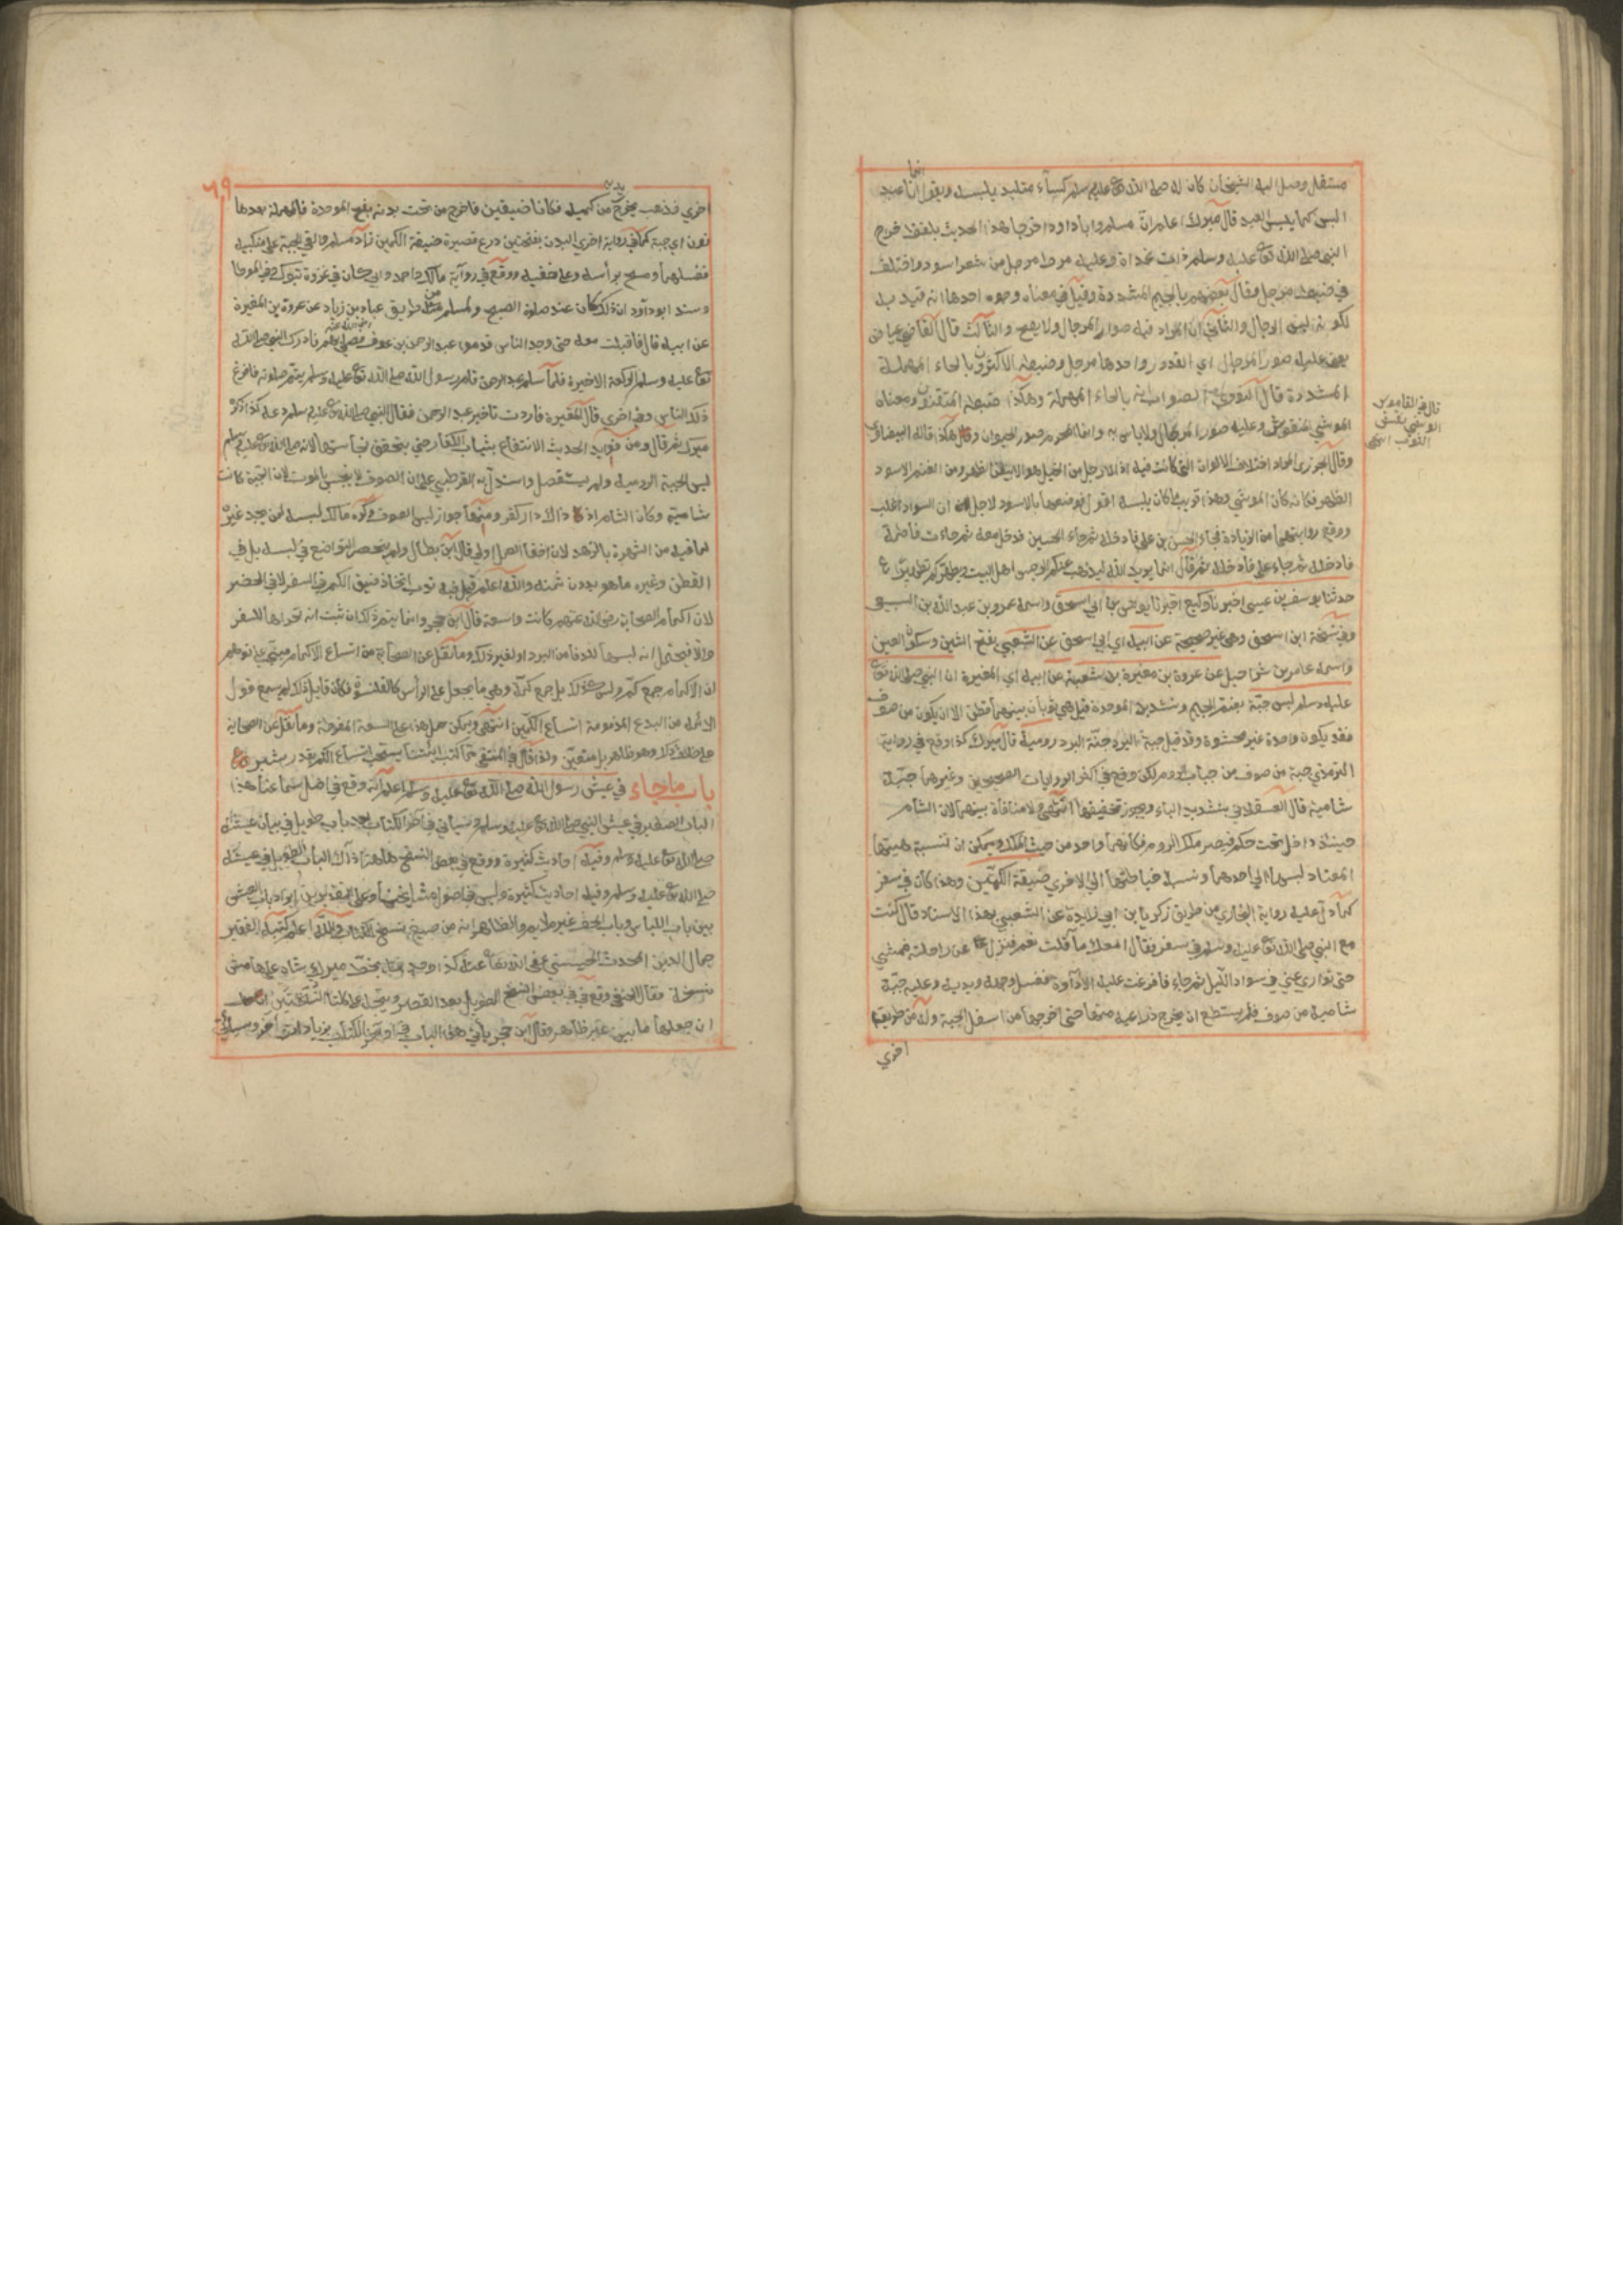 مستقل وصل اليه الشيخان كان له صلى الله تع عليه وسلم كساء متلبد يلبسه ويقول انما انا عبد
البس كما يلبس العبد قال ميرك اعلم ان مسلم وابا داود اخرجا هذا الحديث بلفظ خرج
النبي صلى الله تع عليه وسلم ذات غداة وعليه مرط مرحل من شعر اسود واختلف
في ضبط مرحل فقال بعضهم بالجيم المشددة وقيل في معناه وجوه احدها انه قيد به
لكونه لبس الرجال والثاني ان المراد فيه صور الرجال ولا يصح والثالث قال القاضي عياض
عليه صور المراجل اي القدور واحدها مرجل وضبطه الاكثرون بالحاء المهملة
المشددة قال النووي الصواب انه بالحاء المهملة وهكذا ضبطه المتقنون ومعناه
الموشي المنقوش وعليه صور الرحال ولا باس به وانما المحرم صور الحيوان وقال هكذا قاله البيضاوي
وقال الجزري المراد اختلاف الالوان التي كانت فيه اذ الارجل من الخيل هو الابيض الظهر ومن الغنم الاسود
الظهر فكانه كان الموشي وهذا قريب ما كان يلبسه اقول فوصفها بالاسود لاجل ان السواد اغلب
ووقع روايتهما من الزيادة فجاء الحسن بن علي فادخله ثم جاء الحسين فدخل معه ثم جاءت فاطمة
فادخلها ثم جاء علي فادخله ثم قال انما يريد الله ليذهب عنكم الرجس اهل البيت ويطهركم تطهيرا
حدثنا يوسف بن عيسى اخبرنا وكيع اخبرنا يونس بن ابي اسحق واسمه عمرو بن عبد الله بن السبيعي
وفي نسخة ابن اسحق وهي غير صحيحة عن ابيه اي ابي اسحق عن الشعبي بفتح الشين وسكون العين
واسمه عامر بن شراحيل عن عروة بن مغيرة بن شعبة عن ابيه اي المغيرة ان النبي صلى الله تع
عليه وسلم لبس جبة بضم الجيم وتشديد الموحدة قيل هي ثوبان بينهما قطن الا ان يكون من صوف
فقد يكون واحدة غير محشوة وقد قيل جبة البرد جنة البرد رومية قال ميرك كذا وقع في رواية
الترمذي جبة من صوف من جباب الروم لكن وقع في اكثر الروايات الصحيحين وغيرهما جبة
شامية قال العسقلاني بتشديد الياء ويجوز تخفيفها انتهى ولا منافاة بينهما لان الشام
حينئذ داخل تحت حكم قيصر ملك الروم فكانهما واحد من حيث الملك ويمكن ان تنسبة هيئتها
المعتاد لبسها الى احدهما ونسبة خياطتها الى الاخرى ضيقة الكمين وهذا كان في سفر
كما دل عليه رواية البخاري من طريق زكريا بن ابي زايدة عن الشعبي بهذا الاسناد قال كنت
مع النبي صلى الله تع عليه وسلم في سفر فقال امعك ماء قلت نعم فنزل عن راحلته فمشى
حتى توارى عني في سواد الليل ثم جاء فافرغت عليه الاداوة فغسل وجهه ويديه وعليه جبة
شامية من صوف فلم يستطع ان يخرج ذراعيه منها حتى اخرجهما من اسفل الجبة وله من طريق
اخرى
قال في القاموس
الوشي نقش
الثوب انتهى
٦٩
اخرى فذهب يخرج يديه من كميه فكانا ضيقين فاخرج من تحت بدنه بفتح الموحدة فالمهملة بعدها
نون اي جبة كما في رواية اخرى البدن بفتحتين درع قصيرة ضيقة الكمين زاد مسلم والقى الجبة على منكبيه
فغسلهما ومسح براسه وعلى خفيه ووقع في رواية مالك واحمد وابي داود ان كان في غزوة تبوك في الموطا
وسند ابو داود ان ذلك كان عند صلوة الصبح ولمسلم من طريق عباد بن زياد عن عروة بن المغيرة
عن ابيه قال فاقبلت معه حتى وجد الناس قدموا عبد الرحمن بن عوف رضي الله عنه فصلى بهم فادرك النبي صلى الله
تع عليه وسلم الركعة الاخيرة فلما سلم عبد الرحمن قام رسول الله صلى الله تع عليه وسلم يتم صلوته فافزع
ذلك الناس وفي اخرى قال المغيرة فاردت تاخير عبد الرحمن فقال النبي صلى الله تع عليه وسلم دعه كذا ذكره
ميرك ثم قال ومن فوايد الحديث الانتفاع بثياب الكفار حتى يتحقق نجاستها لانه صلى الله تع عليه وسلم
لبس الجبة الرومية ولم يستفصل واستدل به القرطبي على ان الصوف لا ينجس بالموت لان الجبة كانت
شامية وكان الشام اذ ذاك دار كفر ومنها جواز لبس الصوف وكره مالك لبسه لمن يجد غيره
لما فيه من الشهرة بالزهد لان اخفاء العمل اولى قال ابن بطال ولم ينحصر التواضع في لبسه بل في
القطن وغيره ما هو بدون ثمنه والله اعلم قيل فيه ندب اتخاذ ضيق الكم في السفر لا في الحضر
لان اكمام الصحابة رضي الله عنهم كانت واسعة قال ابن حجر وانما يتم ذلك ان ثبت انه تحراها للسفر
والا فيحتمل انه لبسها للدفا من البرد او لغير ذلك وما نقل عن الصحابة من اتساع الاكمام مبني على توهم
ان الاكمام جمع كم وليس كذلك بل جمع كمة وهي ما يجعل على الراس كالقلنسوة فكان قايل ذلك لم يسمع قول
الائمة من البدع المذمومة اتساع الكمين انتهى ويمكن حمل هذا على السعة المفرطة وما نقل عن الصحابة
على خلاف ذلك وهو ظاهر بل متعين ولذا قال في المنتقى من كتب ائمتنا يستحب اتساع الكم بقدر شبر
باب ما جاء في عيش رسول الله صلى الله تع عليه وسلم اعلم انه وقع في اصل سماعنا هذا
الباب الصغير في عيش النبي صلى الله تع عليه وسلم وسياتي في اخر الكتاب بعد باب طويل في بيان عيشه
صلى الله تع عليه وسلم وفيه احاديث كثيرة ووقع في بعض النسخ هاهنا ذلك الباب الطويل في عيشه
صلى الله تع عليه وسلم وفيه احاديث كثيرة وليس في اصول مشايخنا وعلى التقديرين ايراد باب العيش
بين باب اللباس وباب الخف غير ملايم والظاهر انه من صنيع نساخ الكتاب والله اعلم كتبه الفقير
جمال الدين المحدث الحسيني عفى الله تع عنه كذا وجد بخط ميرك شاه على هامش
نسخة فقال الحنفي وقع في بعض النسخ الطويل بعد القصير ويتجه على كلتا النسختين
ان جعلهما بابين غير ظاهر وقال ابن حجر ياتي هذا الباب في اواخر الكتاب بزيادة اخرى